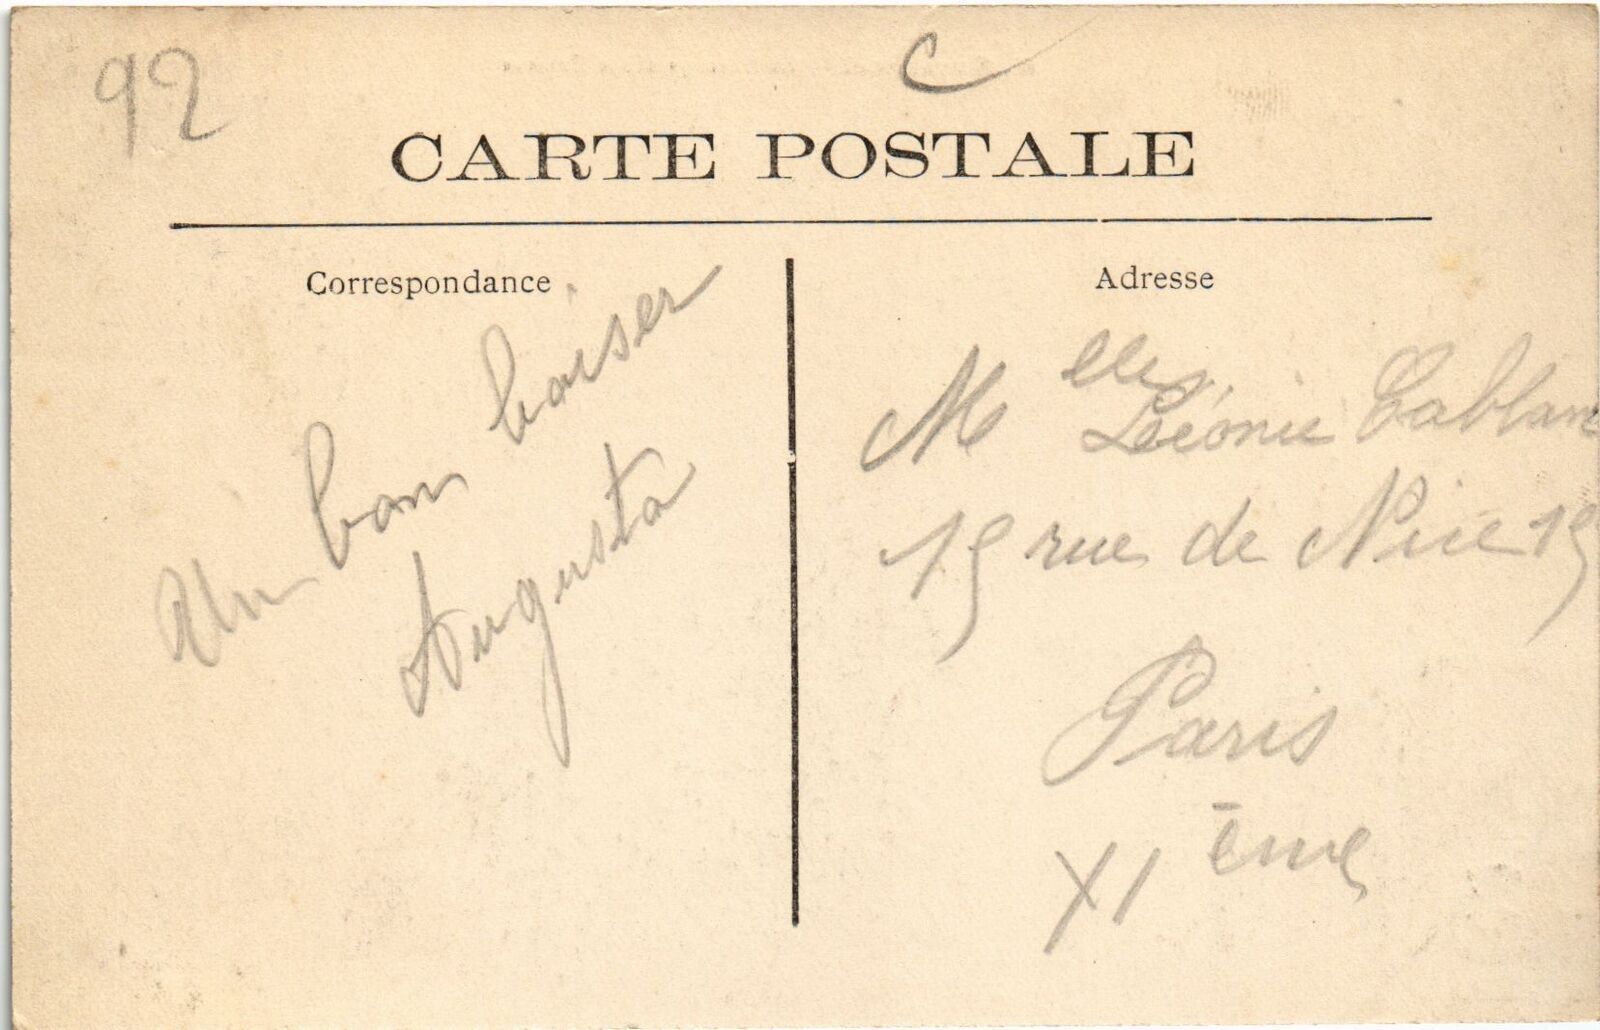 92
C
CARTE POSTALE
Correspondance
Un bon baiser
Augusta
Adresse
Melle Léonie Cablanc
19 rue de Nice 19
Paris
XI ème